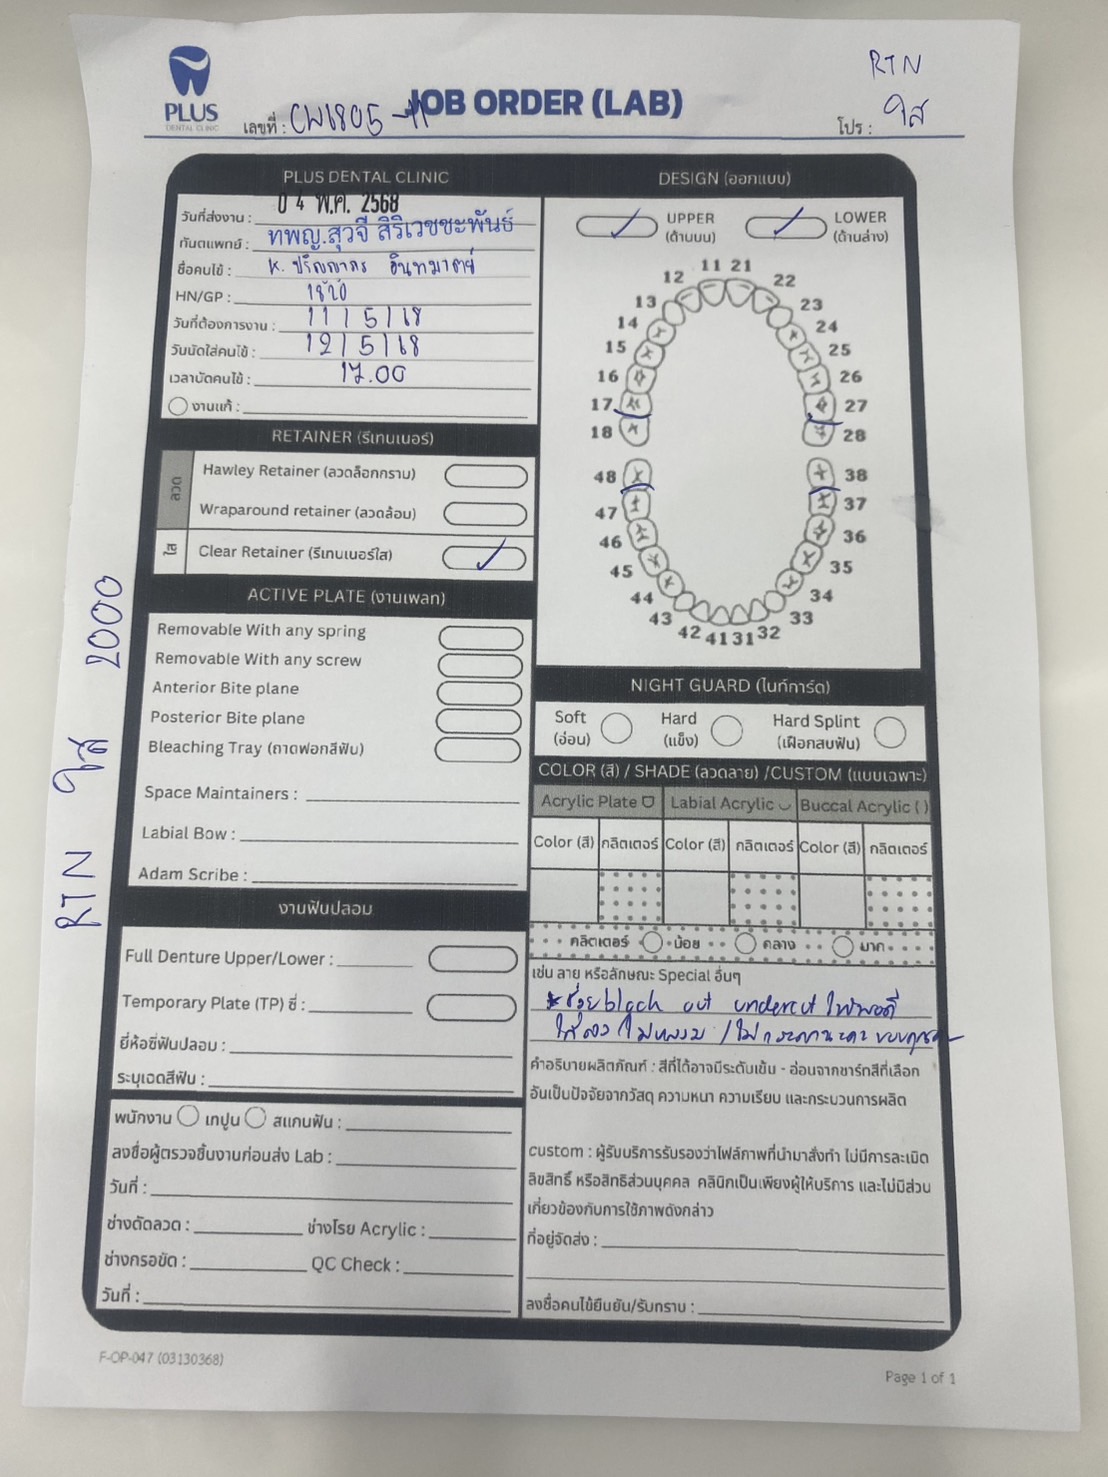 PLUS
DENTAL CLINIC
JOB ORDER (LAB)
RTN
เลขที่ : CW1805-11
โปร : ใส
PLUS DENTAL CLINIC
วันที่ส่งงาน : 0 4 พ.ค. 2568
ทันตแพทย์ : ทพญ.สุวจี สิริเวชชะพันธ์
ชื่อคนไข้ : K.
HN/GP : 1820
วันที่ต้องการงาน : 11/5/68
วันนัดใส่คนไข้ : 12/5/68
เวลานัดคนไข้ : 17.00
งานแก้ :
RETAINER (รีเทนเนอร์)
ลวด
Hawley Retainer (ลวดล็อกกราม)
Wraparound retainer (ลวดล้อม)
ใส
Clear Retainer (รีเทนเนอร์ใส)
ACTIVE PLATE (งานเพลท)
Removable With any spring
Removable With any screw
Anterior Bite plane
Posterior Bite plane
Bleaching Tray (ถาดฟอกสีฟัน)
Space Maintainers :
Labial Bow :
Adam Scribe :
งานฟันปลอม
Full Denture Upper/Lower :
Temporary Plate (TP) ซี่ :
ยี่ห้อซี่ฟันปลอม :
ระบุเฉดสีฟัน :
พนักงาน เทปูน สแกนฟัน :
ลงชื่อผู้ตรวจชิ้นงานก่อนส่ง Lab :
วันที่ :
ช่างดัดลวด : ช่างโรย Acrylic :
ช่างกรอขัด : QC Check :
วันที่ :
RTN ใส 2000
DESIGN (ออกแบบ)
UPPER
(ด้านบน)
LOWER
(ด้านล่าง)
11 21
12 22
13 23
14 24
15 25
16 26
17 27
18 28
48 38
47 37
46 36
45 35
44 34
43 33
42 41 31 32
NIGHT GUARD (ไนท์การ์ด)
Soft
(อ่อน)
Hard
(แข็ง)
Hard Splint
(เฝือกสบฟัน)
COLOR (สี) / SHADE (ลวดลาย) /CUSTOM (แบบเฉพาะ)
Acrylic Plate Labial Acrylic Buccal Acrylic ( )
Color (สี) กลิตเตอร์ Color (สี) กลิตเตอร์ Color (สี) กลิตเตอร์
กลิตเตอร์ น้อย กลาง มาก
เช่น ลาย หรือลักษณะ Special อื่นๆ
* ช่วย block out undercut ให้พอดี
ใส่ลง / ไม่หลวม /
คำอธิบายผลิตภัณฑ์ : สีที่ได้อาจมีระดับเข้ม - อ่อนจากชาร์ทสีที่เลือก
อันเป็นปัจจัยจากวัสดุ ความหนา ความเรียบ และกระบวนการผลิต
custom : ผู้รับบริการรับรองว่าไฟล์ภาพที่นำมาสั่งทำ ไม่มีการละเมิด
ลิขสิทธิ์ หรือสิทธิส่วนบุคคล คลินิกเป็นเพียงผู้ให้บริการ และไม่มีส่วน
เกี่ยวข้องกับการใช้ภาพดังกล่าว
ที่อยู่จัดส่ง :
ลงชื่อคนไข้ยืนยัน/รับทราบ :
F-OP-047 (03130368)
Page 1 of 1